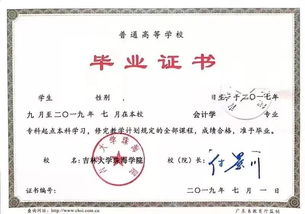 普通高等学校
毕业证书
学生 性别, 日生于二〇一七年
九月至二〇一九年 七月在本校 会计学 专业
专科起点本科学习，修完教学计划规定的全部课程，成绩合格，准予毕业。
校 名：吉林大学珠海学院 校（院）长：付景川
证书编号： 二〇一九年 七月 一日
查询网址：http://www.chsi.com.cn 广东省教育厅监制